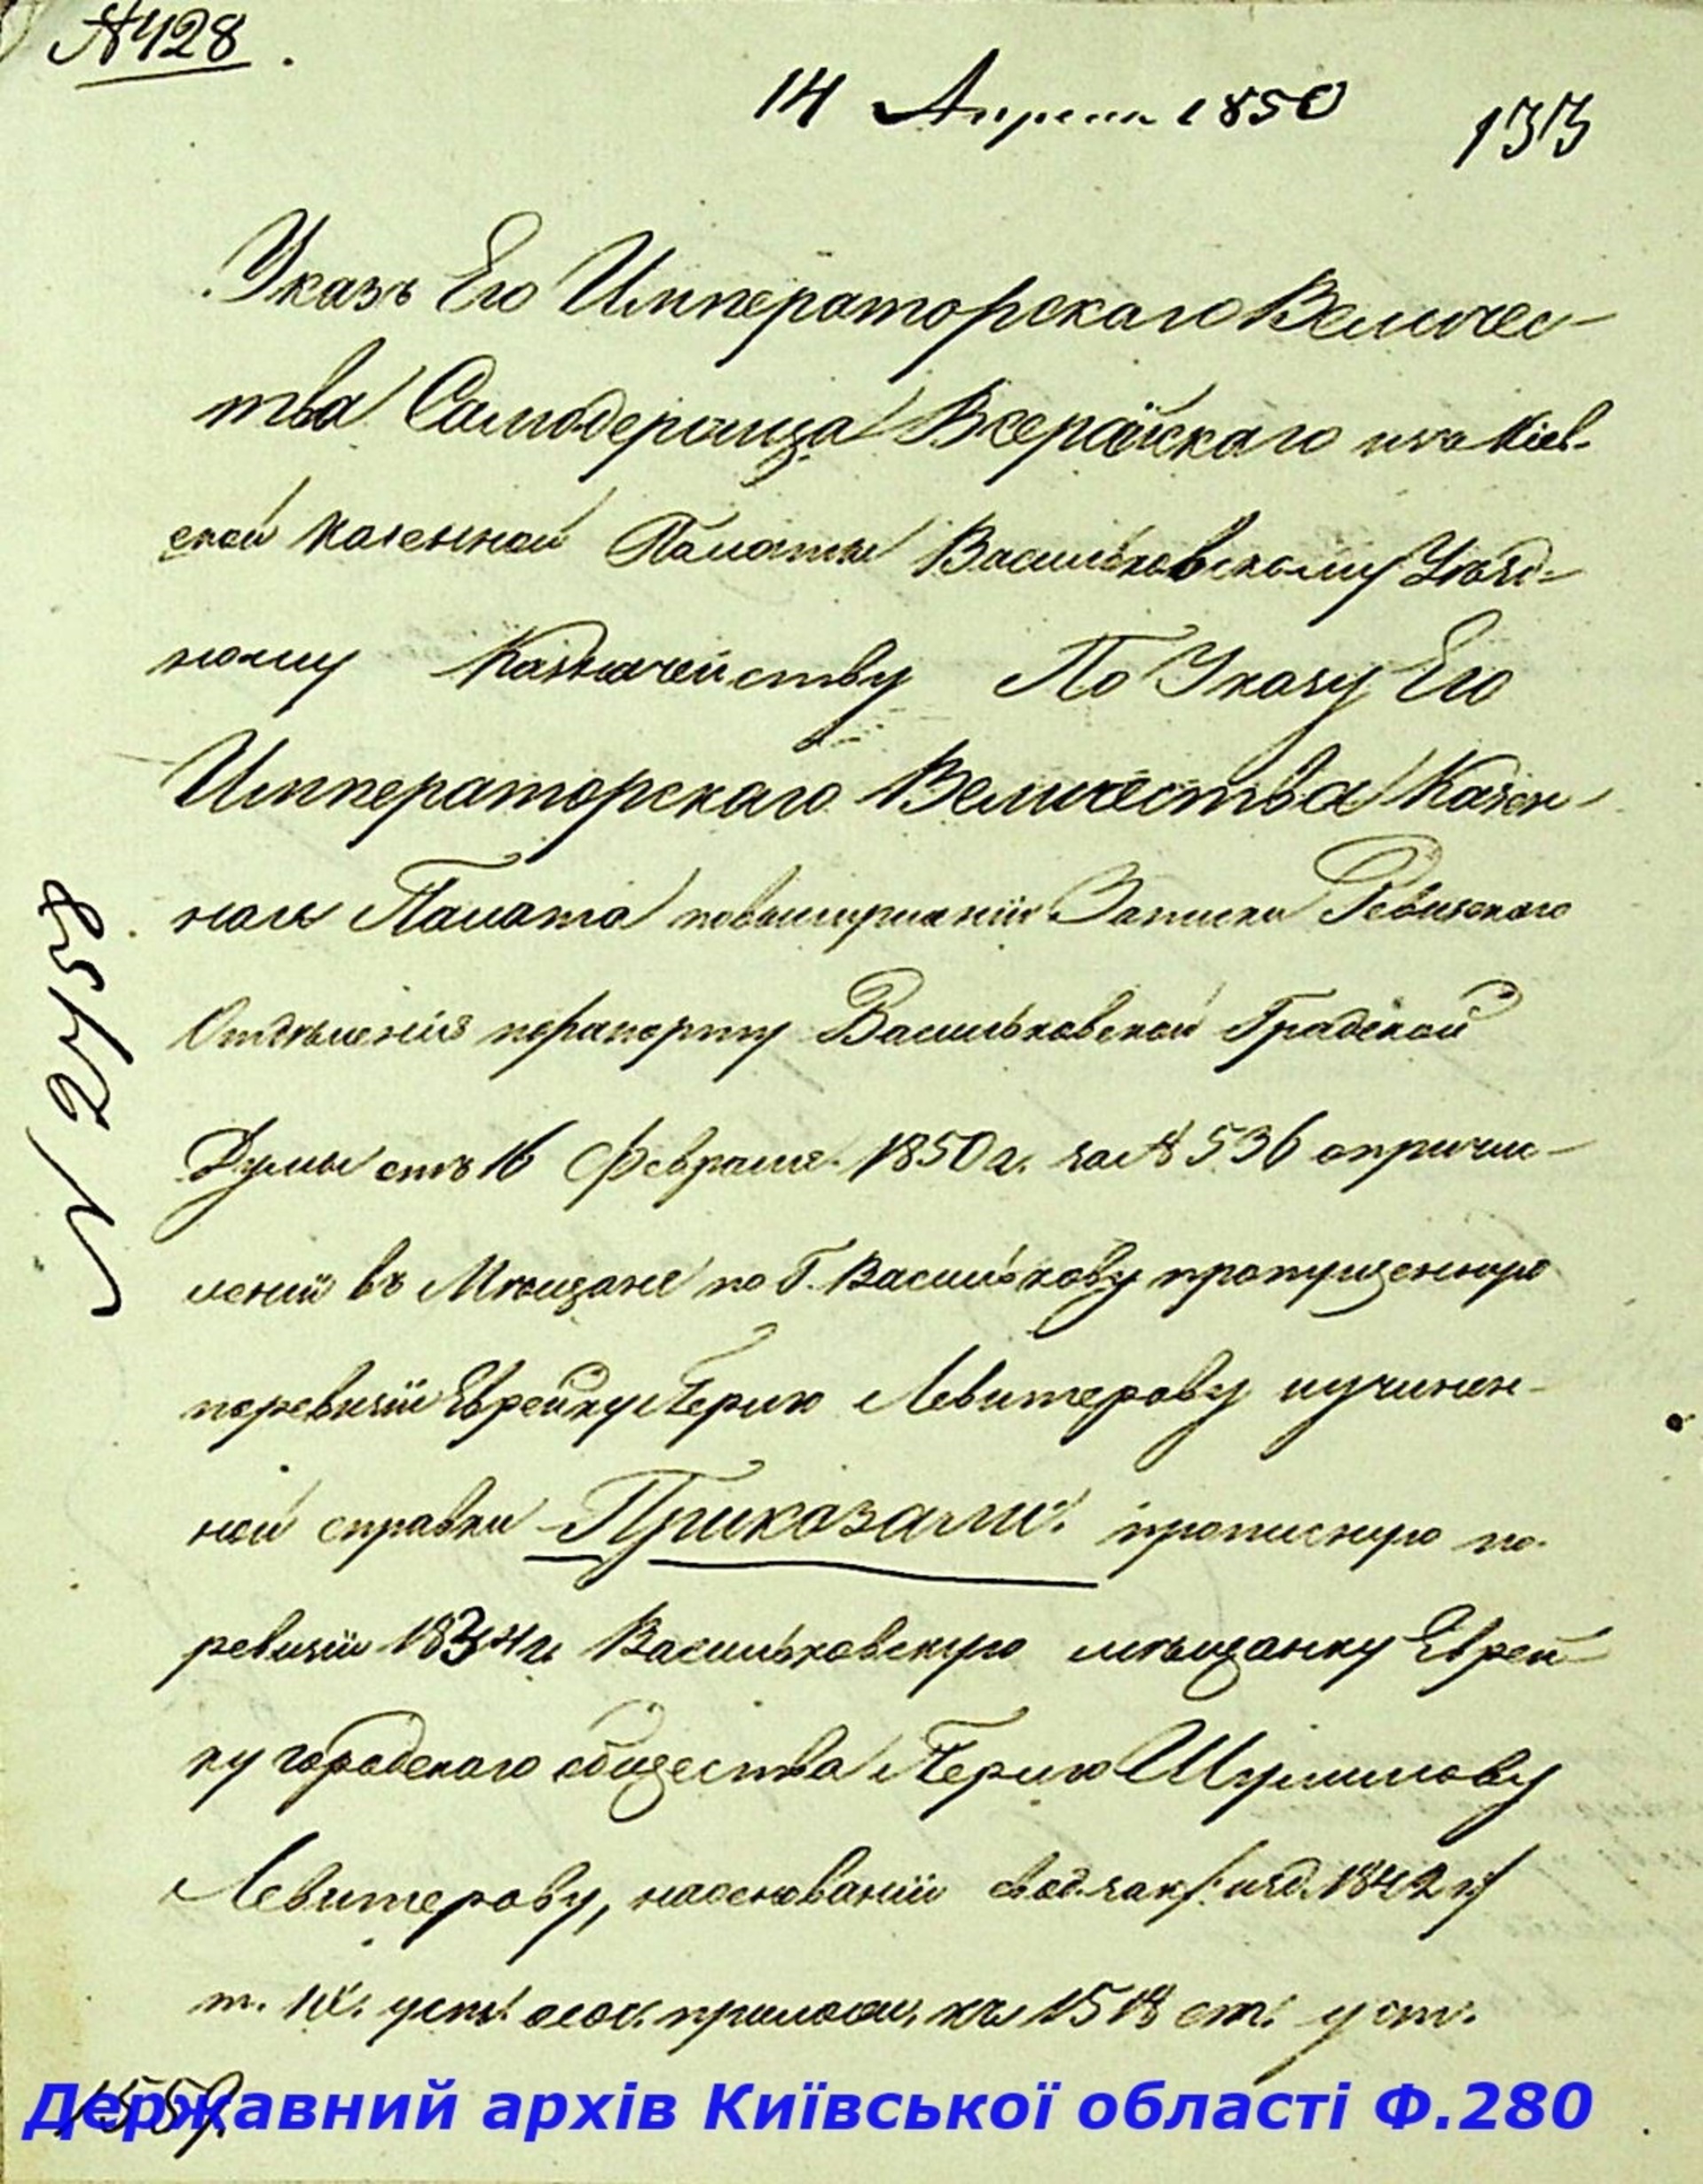 №428.
14 Апреля 1850
133
Указъ Его Императорскаго Величес-
тва Самодержца Всеройскаго изъ Кіев-
ской казенной Палаты Васильковскому Уѣзд-
ному Казначейству По Указу Его
Императорскаго Величества Казен-
ная Палата по выслушаніи Записки Ревизскаго
Отдѣленія по рапорту Васильковской Градской
Думы отъ 16 Февраля 1850 г. за № 536 о причис-
леніи въ Мѣщане по Г. Василькову пропущенную
по ревизіи Еврейку Перлю Левитерову и учинен-
ной справки Приказали: прописную по
ревизіи 1834 г. Васильковскую мѣщанку Еврей-
ку городскаго общества Перлю Шулимову
Левитерову, на основаніи свод. зак. /: изд. 1842 г. :/
т. уст. прилож. къ 1518 ст. уст.
N 2758
1559
Державний архів Київської області Ф.280